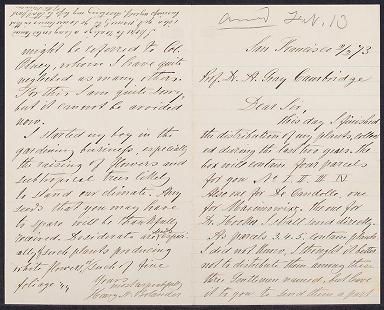 ansd Feb. 13
San Francisco 2/2 73
Prof. Dr. A. Gray Cambridge
Dear Sir,
This day I finished
the distribution of my plants, collect-
ed during the last two years. The
box will contain four parcels
for you No I II III IV
Also one for De Candolle, one
for Maximowicz, the one for
Dr. Hooker I shall send directly.
As parcels 3, 4, 5 contain plants
I did not know, I thought it better
not to distribute them among these
three Gentlemen named, but leave
it to you to send them a part
might be referred to Col.
Olney, whom I have quite
neglected as many others.
For this I am quite sorry,
but it cannot be avoided
now.
I started my boy in the
gardening business, especially
the raising of flowers and
subtropical trees likely
to stand our climate. Any
seeds that you may have
to spare will be thankfully
received. Desiderata are especi-
ally such plants producing
white flowers, such of fine
foliage
Yours most respectfully
Henry N. Bolander